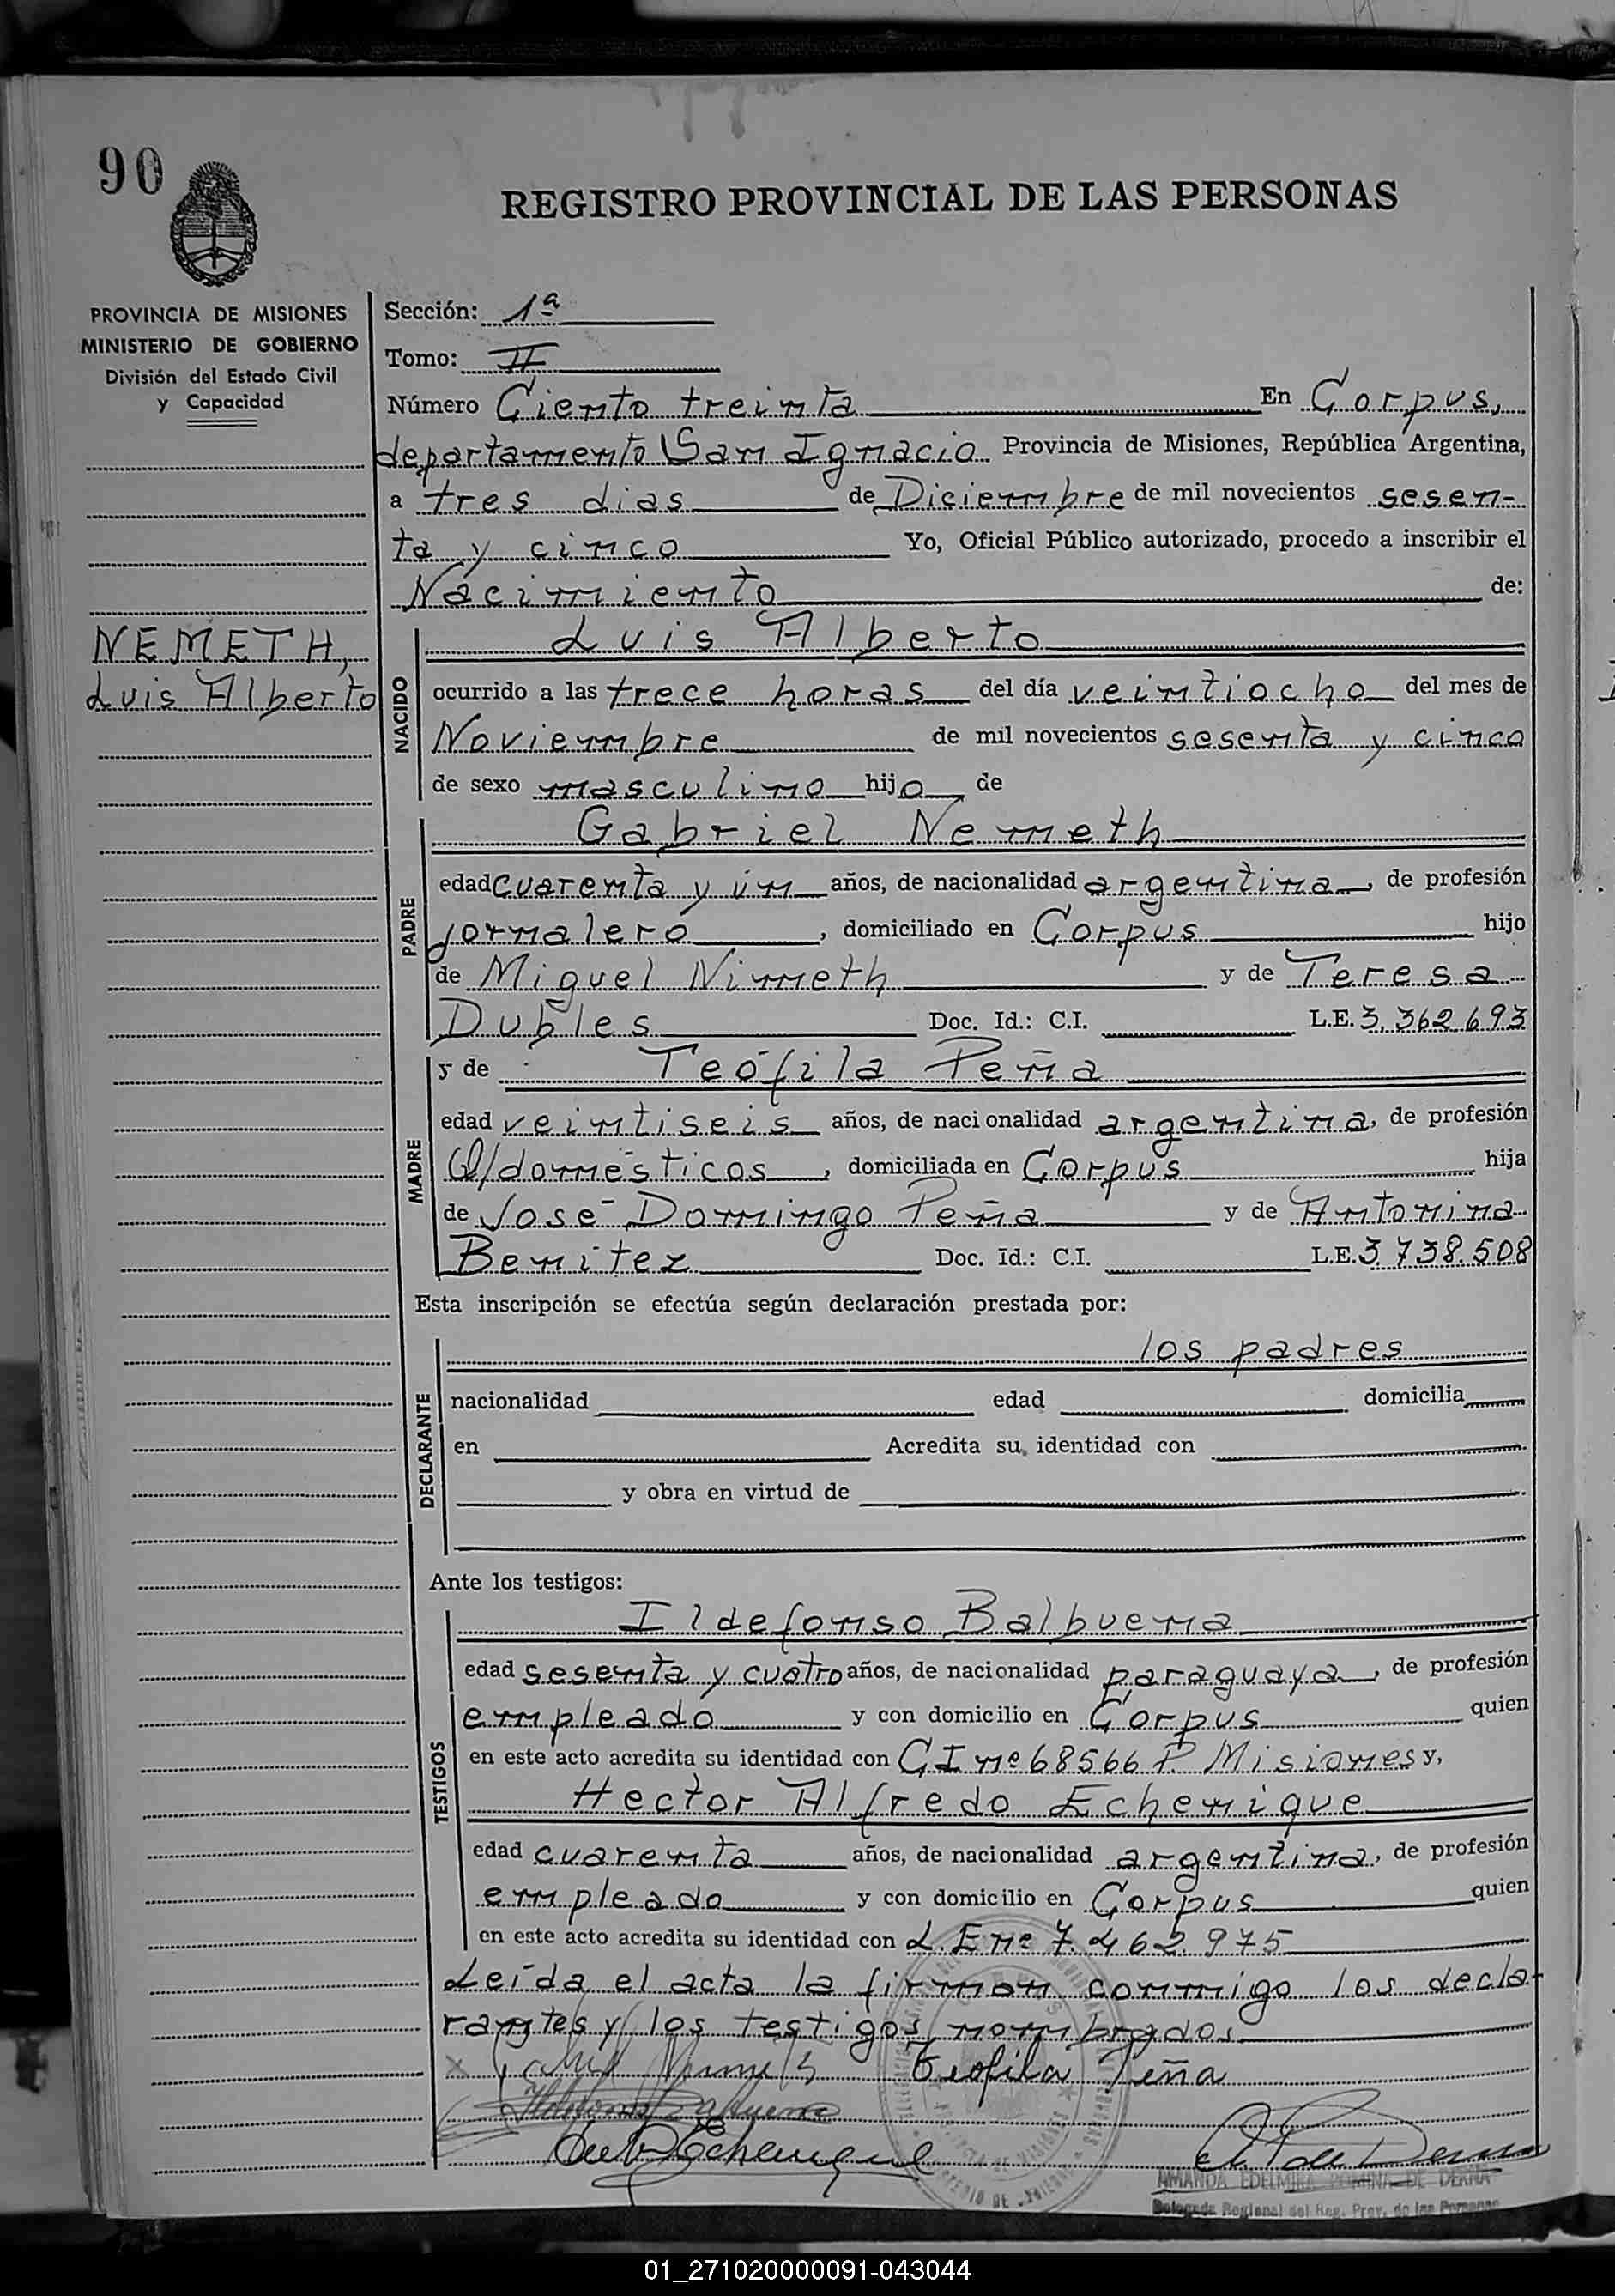 90
REGISTRO PROVINCIAL DE LAS PERSONAS
PROVINCIA DE MISIONES
MINISTERIO DE GOBIERNO
División del Estado Civil
y Capacidad
NEMETH,
Luis Alberto
Sección: 1ª
Tomo: II
Número Ciento treinta En Corpus,
departamento San Ignacio Provincia de Misiones, República Argentina,
a tres dias de Diciembre de mil novecientos sesen-
ta y cinco Yo, Oficial Público autorizado, procedo a inscribir el
Nacimiento de:
NACIDO
Luis Alberto
ocurrido a las trece horas del día veintiocho del mes de
Noviembre de mil novecientos sesenta y cinco
de sexo masculino hijo de
PADRE
Gabriel Nemeth
edad cuarenta y ún años, de nacionalidad argentina, de profesión
jornalero, domiciliado en Corpus hijo
de Miguel Nimeth y de Teresa
Dubles Doc. Id.: C.I. L.E. 3.362.693
MADRE
y de Teófila Peña
edad veintiseis años, de nacionalidad argentina, de profesión
Q/domésticos, domiciliada en Corpus hija
de José Domingo Peña y de Antonina
Benitez Doc. Id.: C.I. L.E. 3.738.508
Esta inscripción se efectúa según declaración prestada por:
DECLARANTE
los padres
nacionalidad edad domicilia
en Acredita su identidad con
y obra en virtud de
Ante los testigos:
TESTIGOS
Ildefonso Balbuena
edad sesenta y cuatro años, de nacionalidad paraguaya, de profesión
empleado y con domicilio en Corpus quien
en este acto acredita su identidad con C.I. nº 68566 P. Misiones y,
Hector Alfredo Echenique
edad cuarenta años, de nacionalidad argentina, de profesión
empleado y con domicilio en Corpus quien
en este acto acredita su identidad con L.E. nº 7.462.975
Leída el acta la firman conmigo los decla-
rantes y los testigos nombrados
Teofila Peña
Ildefonso Balbuena
Echenique
AMANDA EDELMIRA DE DERNA
Delegada Regional del Reg. Prov. de las Personas
01_271020000091-043044